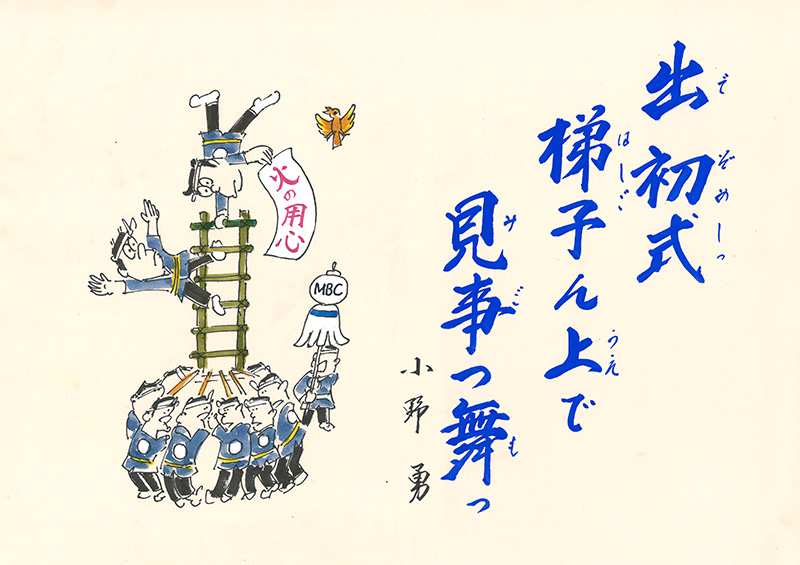 出初式
でぞめしっ
梯子ん上で
はしご
うえ
見事つ舞っ
みご
も
小野勇
火の用心
MBC